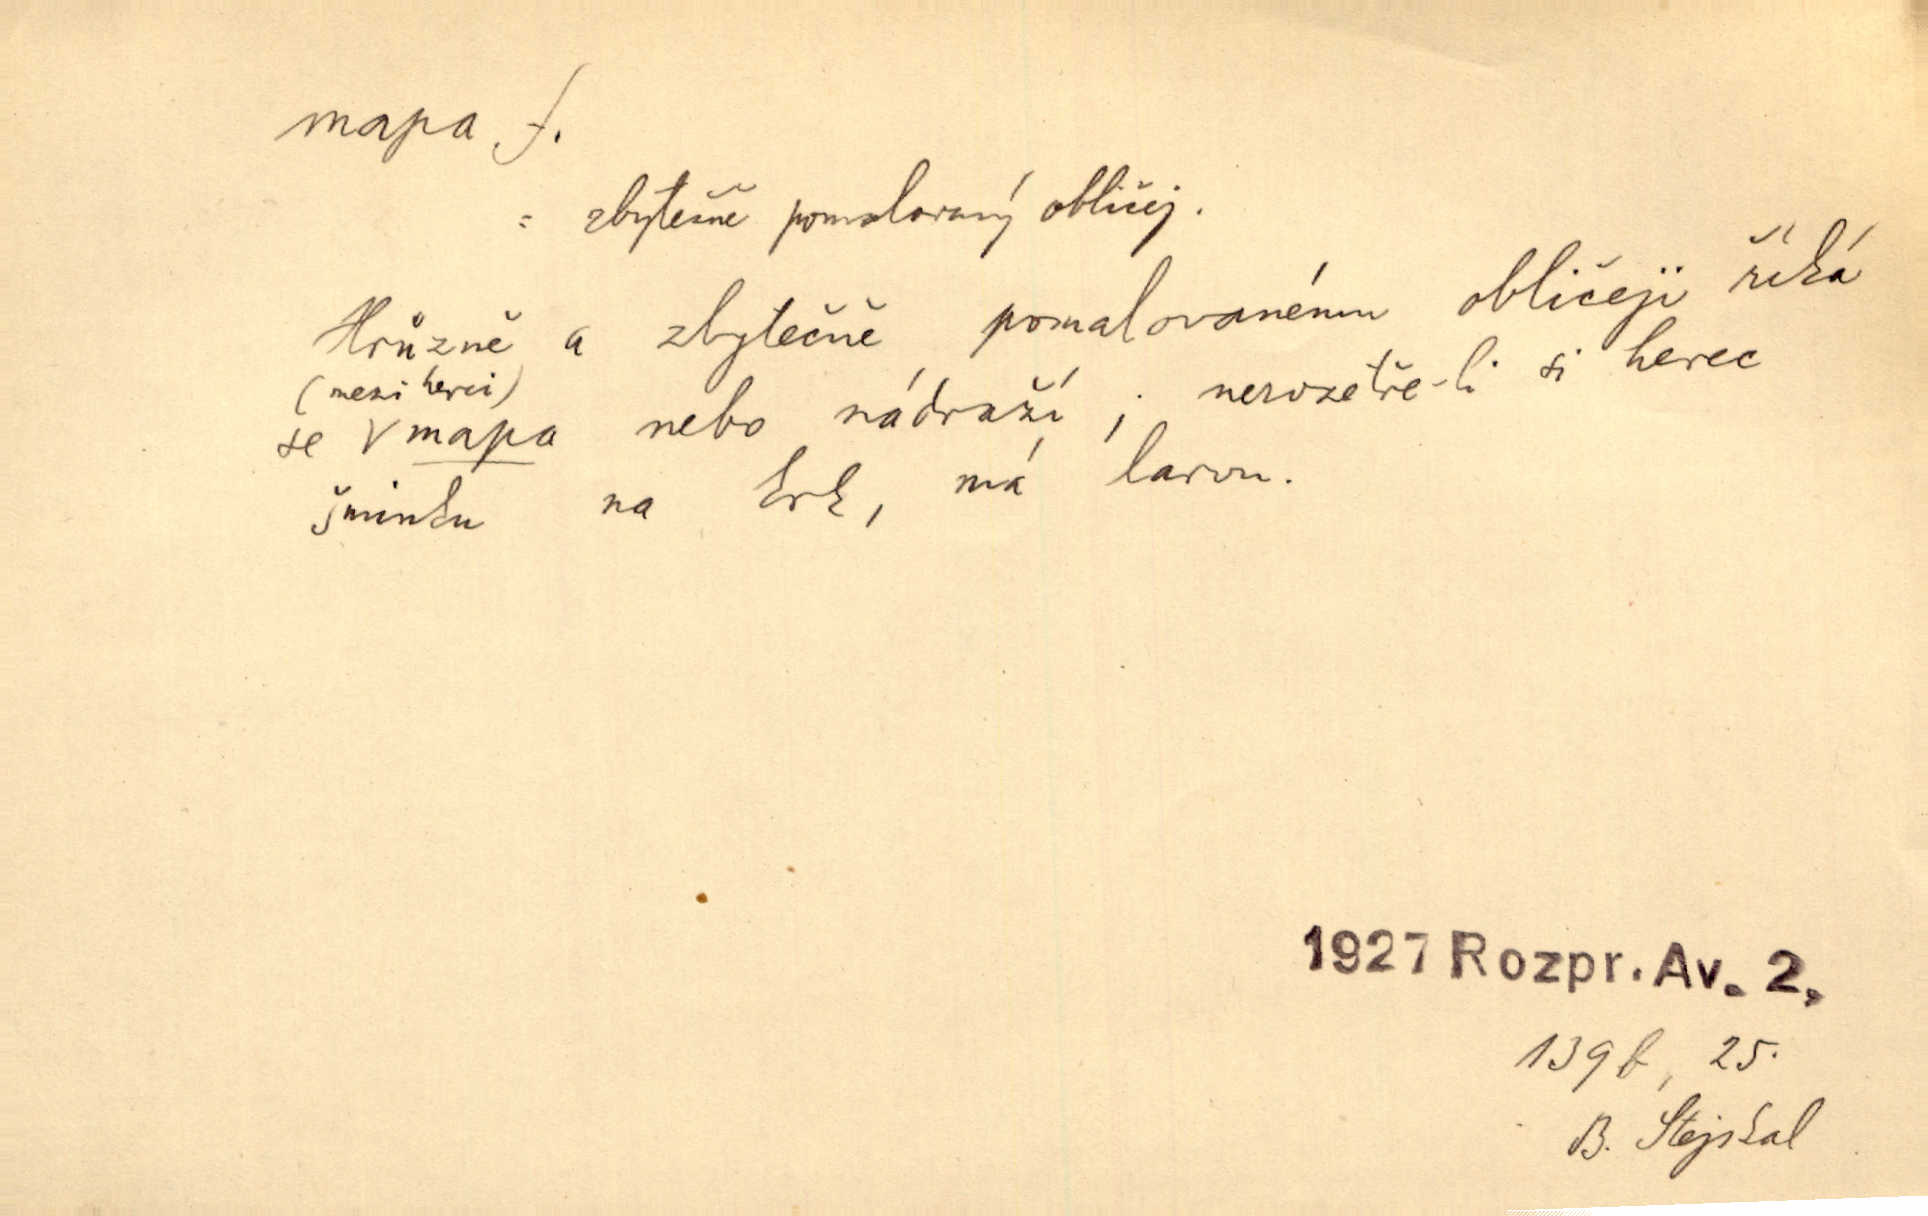 mapa f.
= zbytečně pomalovaný obličej.
Hrůzně a zbytečně pomalovanému obličeji říká
(mezi herci)
se V mapa nebo nádraží; nerozetře-li si herec
šminku na krk, má larvu.
1927 Rozpr. Av. 2,
139b, 25.
B. Stejskal